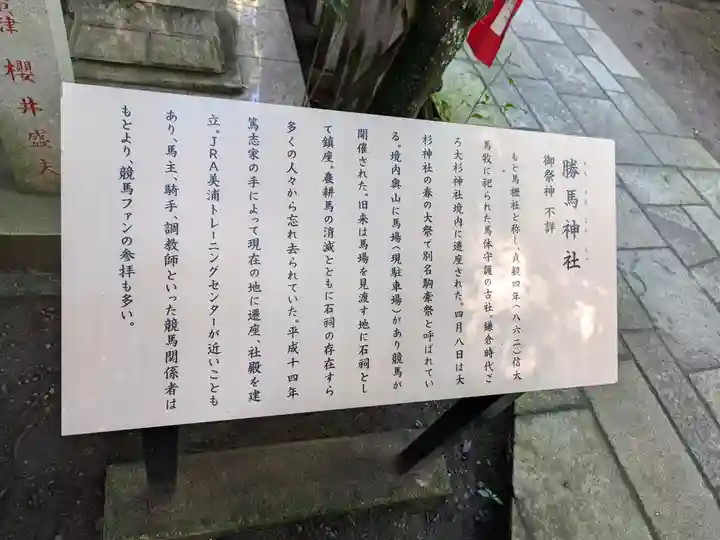 勝馬神社
御祭神 不詳
もと馬櫪社と称し、貞観四年（八六二）信太
馬牧に祀られた馬体守護の古社。鎌倉時代ご
ろ大杉神社境内に遷座された。四月八日は大
杉神社の春の大祭で別名駒牽祭と呼ばれてい
る。境内奥山に馬場（現駐車場）があり競馬が
開催された。旧来は馬場を見渡す地に石祠とし
て鎮座。農耕馬の消滅とともに石祠の存在すら
多くの人々から忘れ去られていた。平成十四年
篤志家の手によって現在の地に遷座、社殿を建
立。ＪＲＡ美浦トレーニングセンターが近いことも
あり、馬主、騎手、調教師といった競馬関係者は
もとより、競馬ファンの参拝も多い。
津 櫻井盛夫